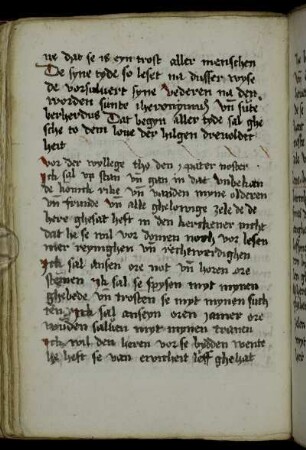 ne dat se is eyn trost aller menschen
De syne tyde so leset na dusser wyse
de vorsulvert syne vederen na den
worden sunte iheronimus vn sute
bernerdus Dat begyn aller tyde sal ghe
sche to dem loue der hilgen drevoldi
heit
Vor der vyllege tho den pater noster
Ik sal up stan vn gan in dat unbekan
de konick rike vn vanden myne olderen
vn frunde vn alle ghelovige zele de de
here gheset heft in den kerckener nicht
dat he se wil vor domen noch vor lesen
mer reynighen vn rechtverdighen
Ik sal ansen ore not vn horen ore
stemen Ik sal se spysen myt mynen
ghebede vn trosten se myt mynen such
ten Ik sal anseyn oren jamer ore
wunden salven myt mynen tranen
Ick wil den heren vor se bydden wente
he heft se van ewicheit leff ghehat